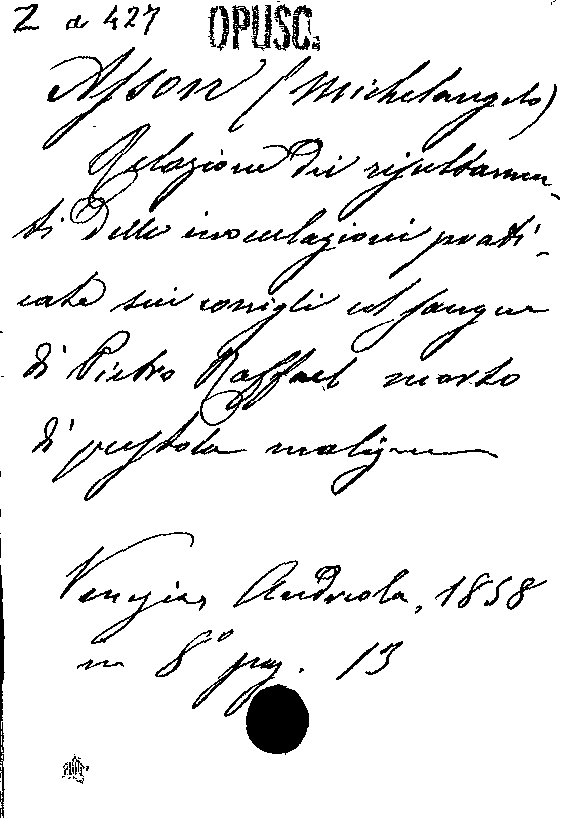 Z a 427 OPUSC.
Asson (Michelangelo)
Relazione dei risultamen-
ti delle inoculazioni prati-
cate sui conigli col sangue
di Pietro Raffael morto
di pustola maligna
Venezia, Andreola, 1858
in 8° pag. 13